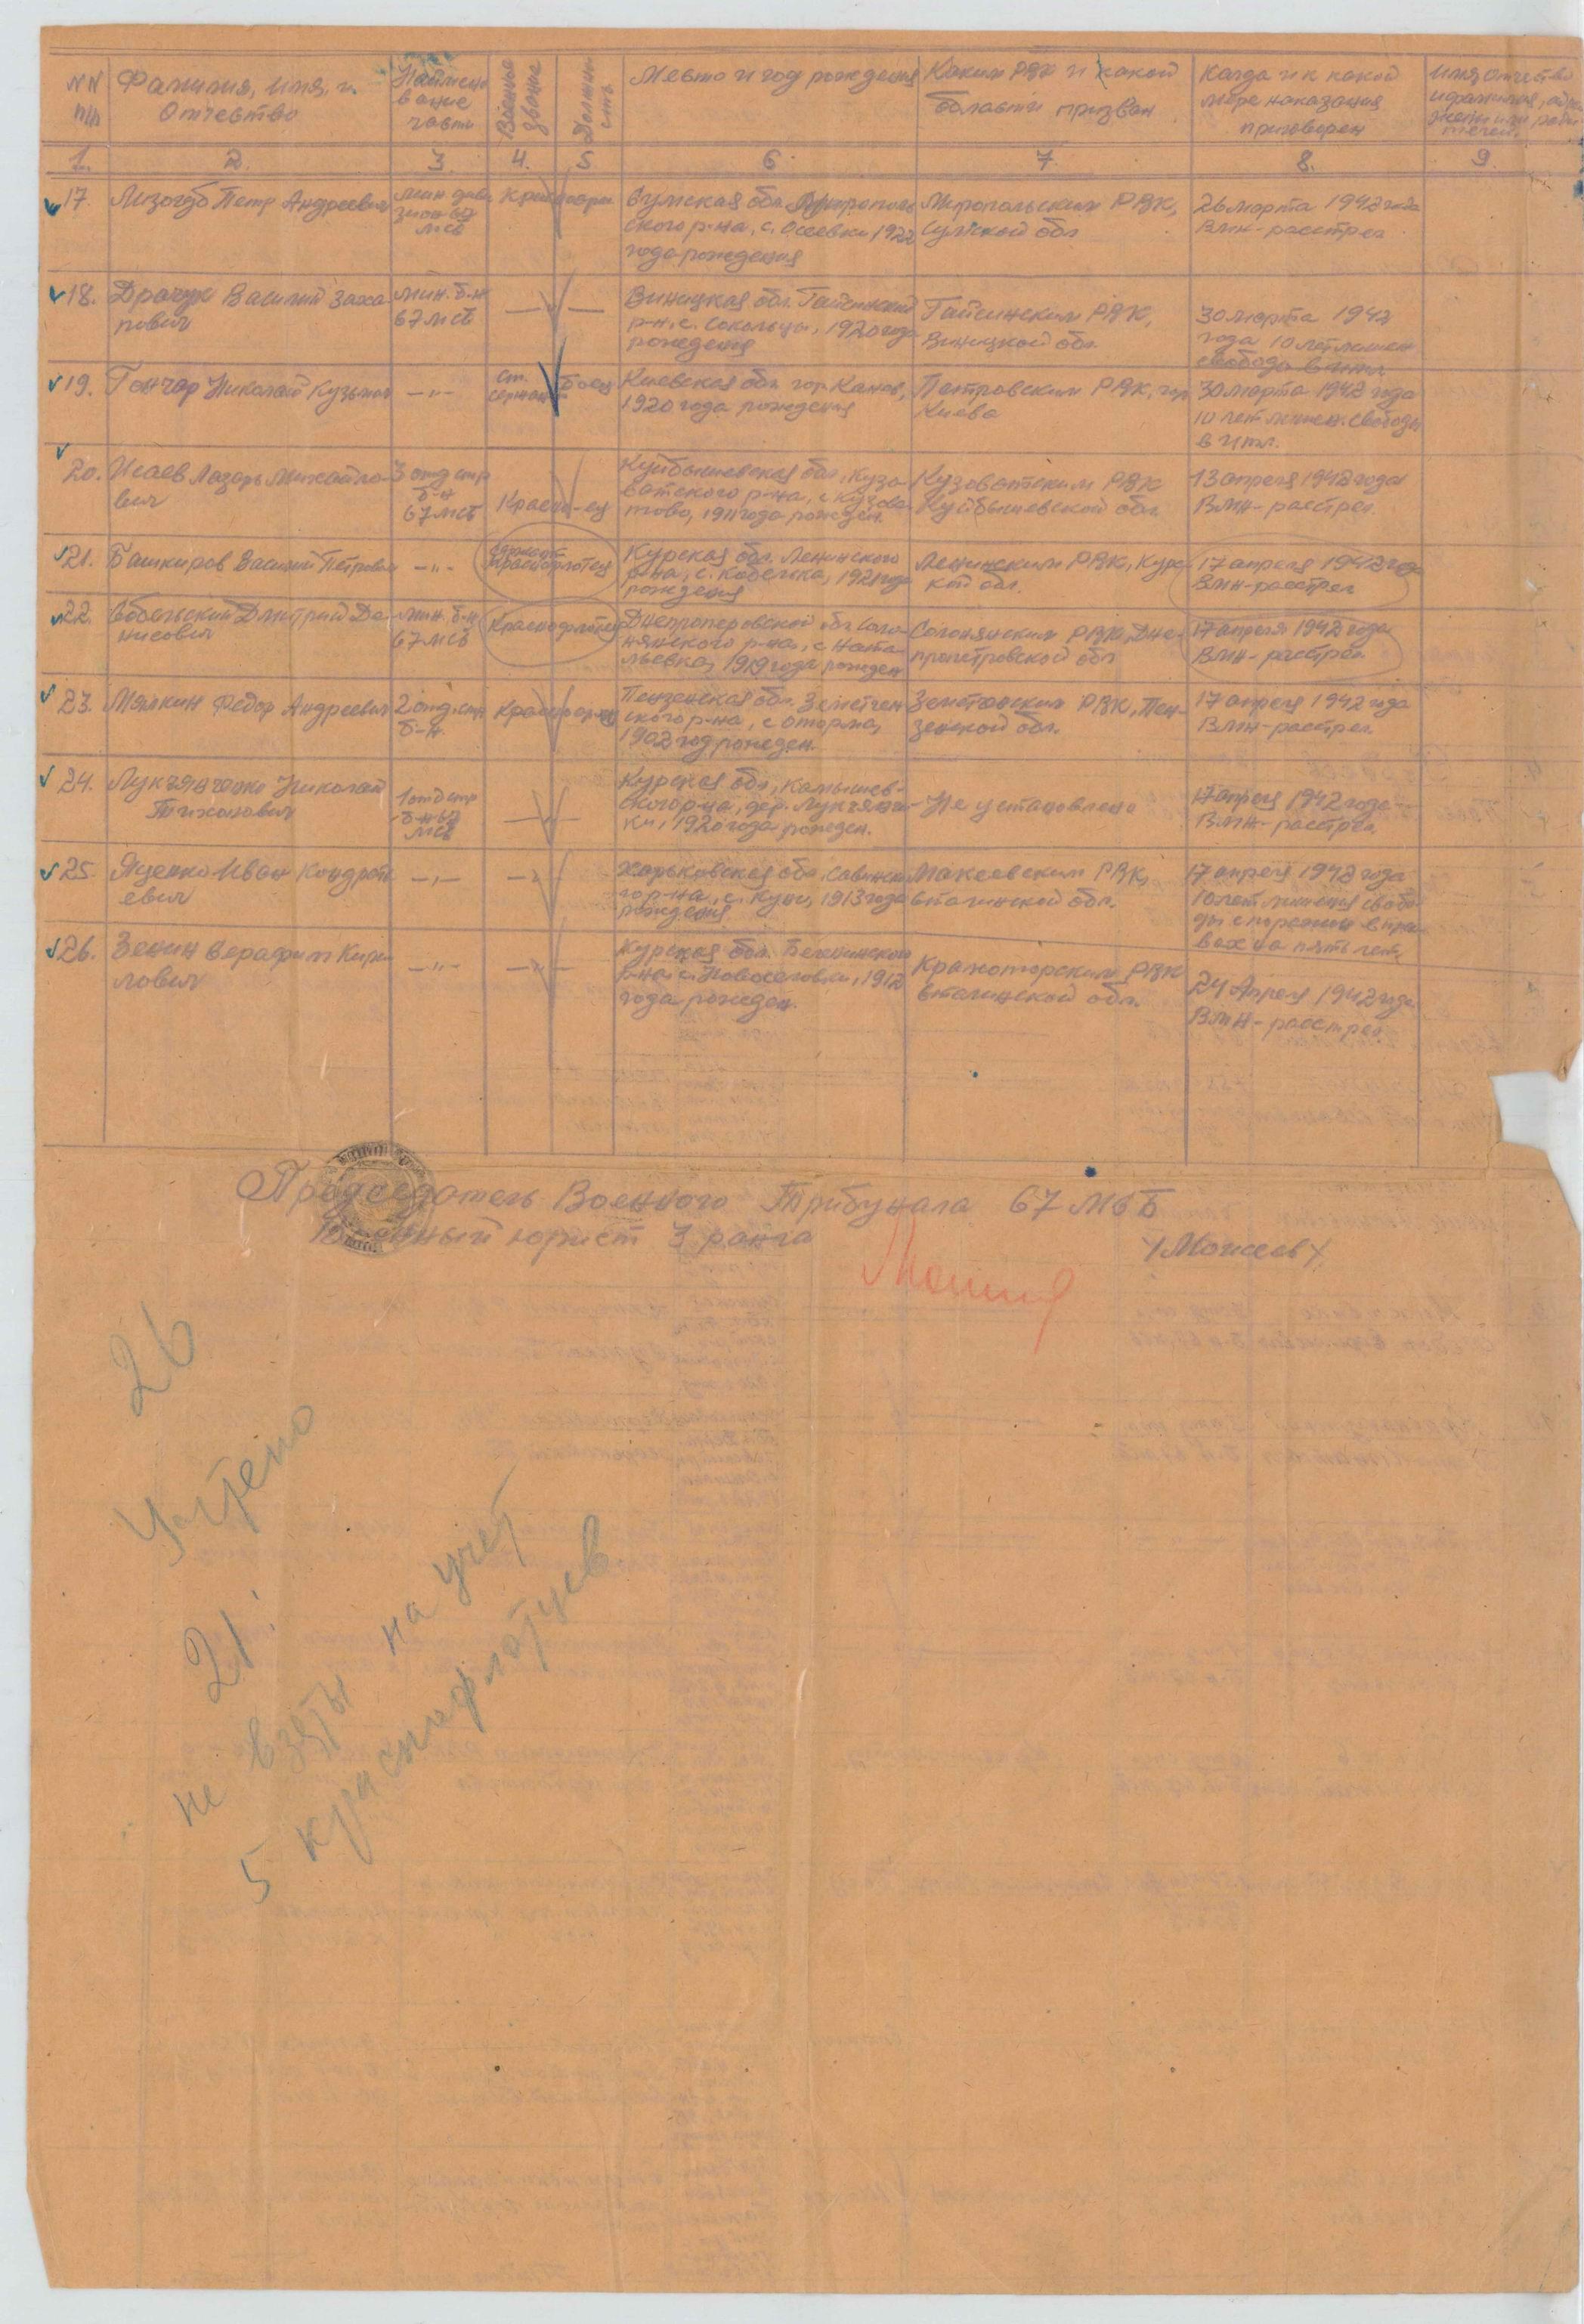 NN п/п
Фамилия, имя, и Отчество
Наимено вание части
Военные звание
Должно сть
Место и год рождения
Каким РВК и какой области призван
Когда и к какой мере наказания приговорен
1. 2. 3. 4. 5 6 7. 8. 9.
17. Лизогуб Петр Андреевич
мин диви зион 67 мсб
Сумская обл. Миропольского р-на, с. Осеевка 1922 года рождения
Миропольским РВК, Сумской обл
26 марта 1942 года
ВМН-расстрел
18. Драчук Василий Захарович
мин. б-н 67 мсб
— " —
Виницкая обл. Гайсинский р-н, с. Сокольцы, 1920 года рождения
Гайсинским РВК, Виницкой обл.
30 марта 1942 года 10 лет лишен свободы в итл.
19. Гончар Николай Кузьмич
— " —
ст. сержант
боец
Киевская обл. гор. Канев, 1920 года рождения
Петровским РВК, гор Киева
30 марта 1942 года
10 лет лишен. свободы в итл.
20. Исаев Лазарь Михайлович
3 отд стр б-н 67 мсб
Красно-ец
Куйбышевская обл, Кузоватского р-на, с Кузоватово, 1911 года рожден.
Кузоватским РВК Куйбышевской обл.
13 апреля 1942 года
ВМН-расстрел.
21. Башкиров Василий Петрович
— " —
Краснофлотец
Курская обл. Ленинского р-на, с. Кобелька, 1921 года рождения
Ленинским РВК, Курской обл.
17 апреля 1942 года
ВМН-расстрел
22. Собольский Дмитрий Денисович
мин. б-н 67 мсб
Краснофлотец
Днепроперовской обл Солонянского р-на, с Натальевка, 1919 года рожден
Солонянским РВК, Днепропетровской обл
17 апреля 1942 года
ВМН-расстрел
23. Мялкин Федор Андреевич
2 отд. стр б-н.
Красноарм
Пензенская обл. Земетчен ского р-на, с оторма, 1902 год рожден.
Земетчанским РВК, Пензенской обл.
17 апреля 1942 года
ВМН-расстрел.
24. Лукъянченко Николай Тихонович
1 отд стр б-н 67 мсб
— " —
Курская обл, Камышевского р-на, дер. Лукъянчики, 1920 года рожден.
Не установлено
17 апреля 1942 года
ВМН-расстрел.
25. Яценко Иван Кондратьевич
— " —
— " —
Харьковская обл, Савинского р-на, с. Кунс, 1913 года рождения
Макеевским РВК, Сталинской обл.
17 апреля 1942 года
10 лет лишения свободы с поражен в правах на пять лет,
26. Зенин Серафим Кирилович
— " —
— " —
Курская обл. р-на с. Новоселовка, 1912 года рожден.
Краматорским РВК Сталинской обл.
24 Апреля 1942 года
ВМН-расстрел
Председатель Военного Трибунала 67 МСБ
Военный юрист 3 ранга /Моисеев/
26
Учтено
21
не взяты на учет
5 краснофлотцев